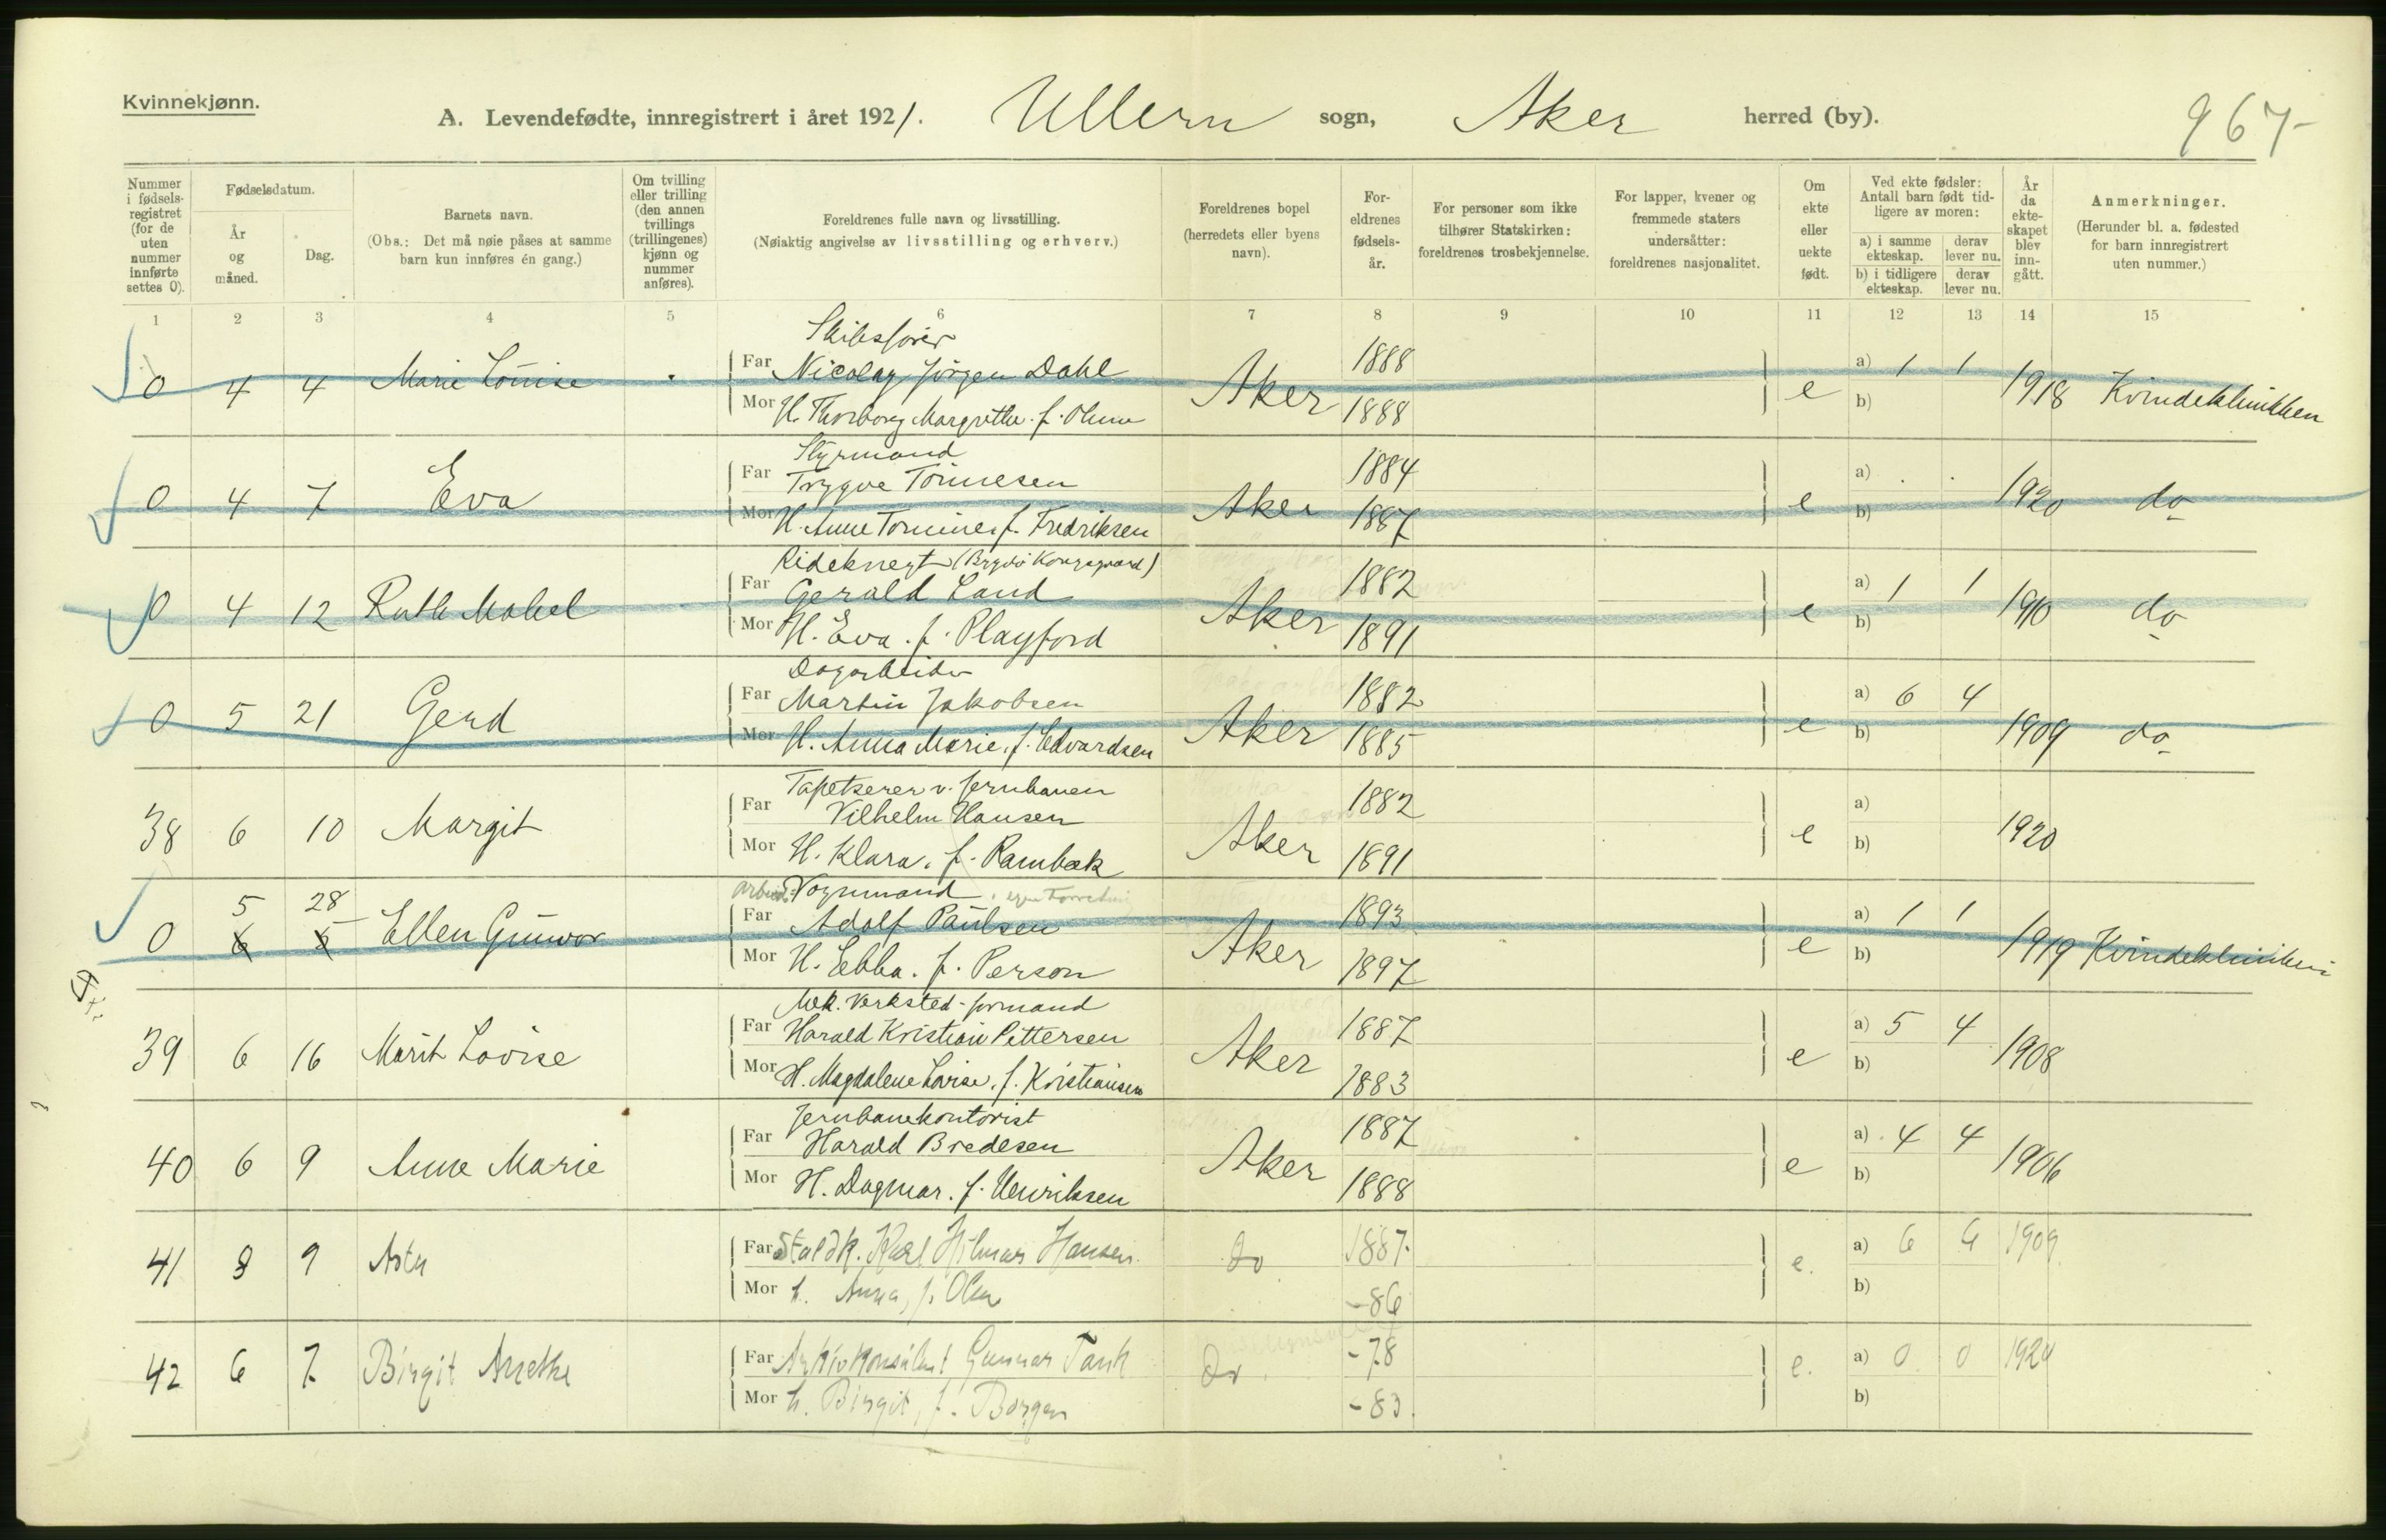 Kvinnekjønn.
A. Levendefødte, innregistrert i året 1921. Ullern sogn, Aker herred (by). 967
Nummer i fødselsregistret (for de uten nummer innførte settes 0).
Fødselsdatum.
År og måned.
Dag.
Barnets navn.
(Obs.: Det må nøie påses at samme barn kun innføres én gang.)
Om tvilling eller trilling (den annen tvillings (trillingenes) kjønn og nummer anføres).
Foreldrenes fulle navn og livsstilling.
(Nøiaktig angivelse av livsstilling og erhverv.)
Foreldrenes bopel (herredets eller byens navn).
Foreldrenes fødselsår.
For personer som ikke tilhører Statskirken: foreldrenes trosbekjennelse.
For lapper, kvener og fremmede staters undersåtter: foreldrenes nasjonalitet.
Om ekte eller uekte født.
Ved ekte fødsler: Antall barn født tidligere av moren:
a) i samme ekteskap. derav lever nu.
b) i tidligere ekteskap. derav lever nu.
År da ekteskapet blev inngått.
Anmerkninger.
(Herunder bl. a. fødested for barn innregistrert uten nummer.)
1 2 3 4 5 6 7 8 9 10 11 12 13 14 15
Skibsfører
0 4 4 Marie Louise Far Nicolay Jørgen Dahl Aker 1888 e a) 1 1 1918 Kvindeklinikken
Mor H. Thorborg Margrethe f. 1888 b)
Styrmand
0 4 7 Eva Far Trygve Tønnesen Aker 1884 e a) 1920 do
Mor H. Anne f. Fredriksen 1887 b)
Rideknegt (Bygdø Kongsgaard)
0 4 12 Ruth Mabel Far Gerald Land Aker 1882 e a) 1 1 1910 do
Mor H. Eva f. Playford 1891 b)
Dagarbeider
0 5 21 Gerd Far Martin Jakobsen Aker 1882 e a) 6 4 1909 do
Mor H. Anna Marie, f. Edvardsen 1885 b)
Tapetserer v. Jernbanen
38 6 10 Margit Far Vilhelm Hansen Aker 1882 e a) 1920
Mor H. Klara, f. Rambæk 1891 b)
Vognmand, egen Forretning
5 28
0 6 5 Ellen Gunvor Far Adolf Paulsen Aker 1893 e a) 1 1 1919 Kvindeklinikken
Mor H. Ebba. f. Person 1897 b)
Mek. Verksted-formand
39 6 16 Marit Lovise Far Harald Kristian Pettersen Aker 1887 e a) 5 4 1908
Mor H. Magdalene Lovise, f. Kristiansen 1883 b)
Jernbanekontorist
40 6 9 Anne Marie Far Harald Bredesen Aker 1887 e a) 4 4 1906
Mor H. Dagmar. f. Henriksen 1888 b)
41 8 9 Asta Far Staldk. Karl Hilmar Hansen do 1887 e. a) 6 6 1909
Mor h. Anna, f. Olsen -86 b)
42 6 7 Birgit Anethe Far Arkivkonsulent Gunnar Tank do -78 e. a) 0 0 1920
Mor h. Birgit, f. Borgen -83. b)